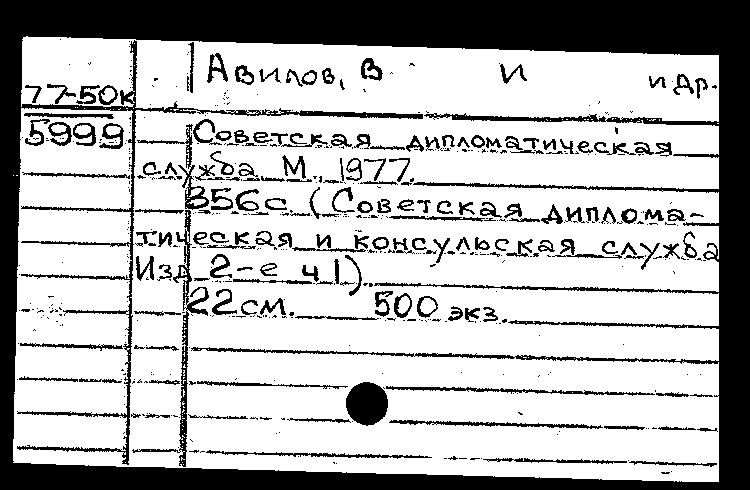 Авилов, В И и др.
77-50к
5999
Советская дипломатическая
служба М., 1977.
356с (Советская диплома-
тическая и консульская служба
Изд 2-е ч 1)
22 см. 500 экз.